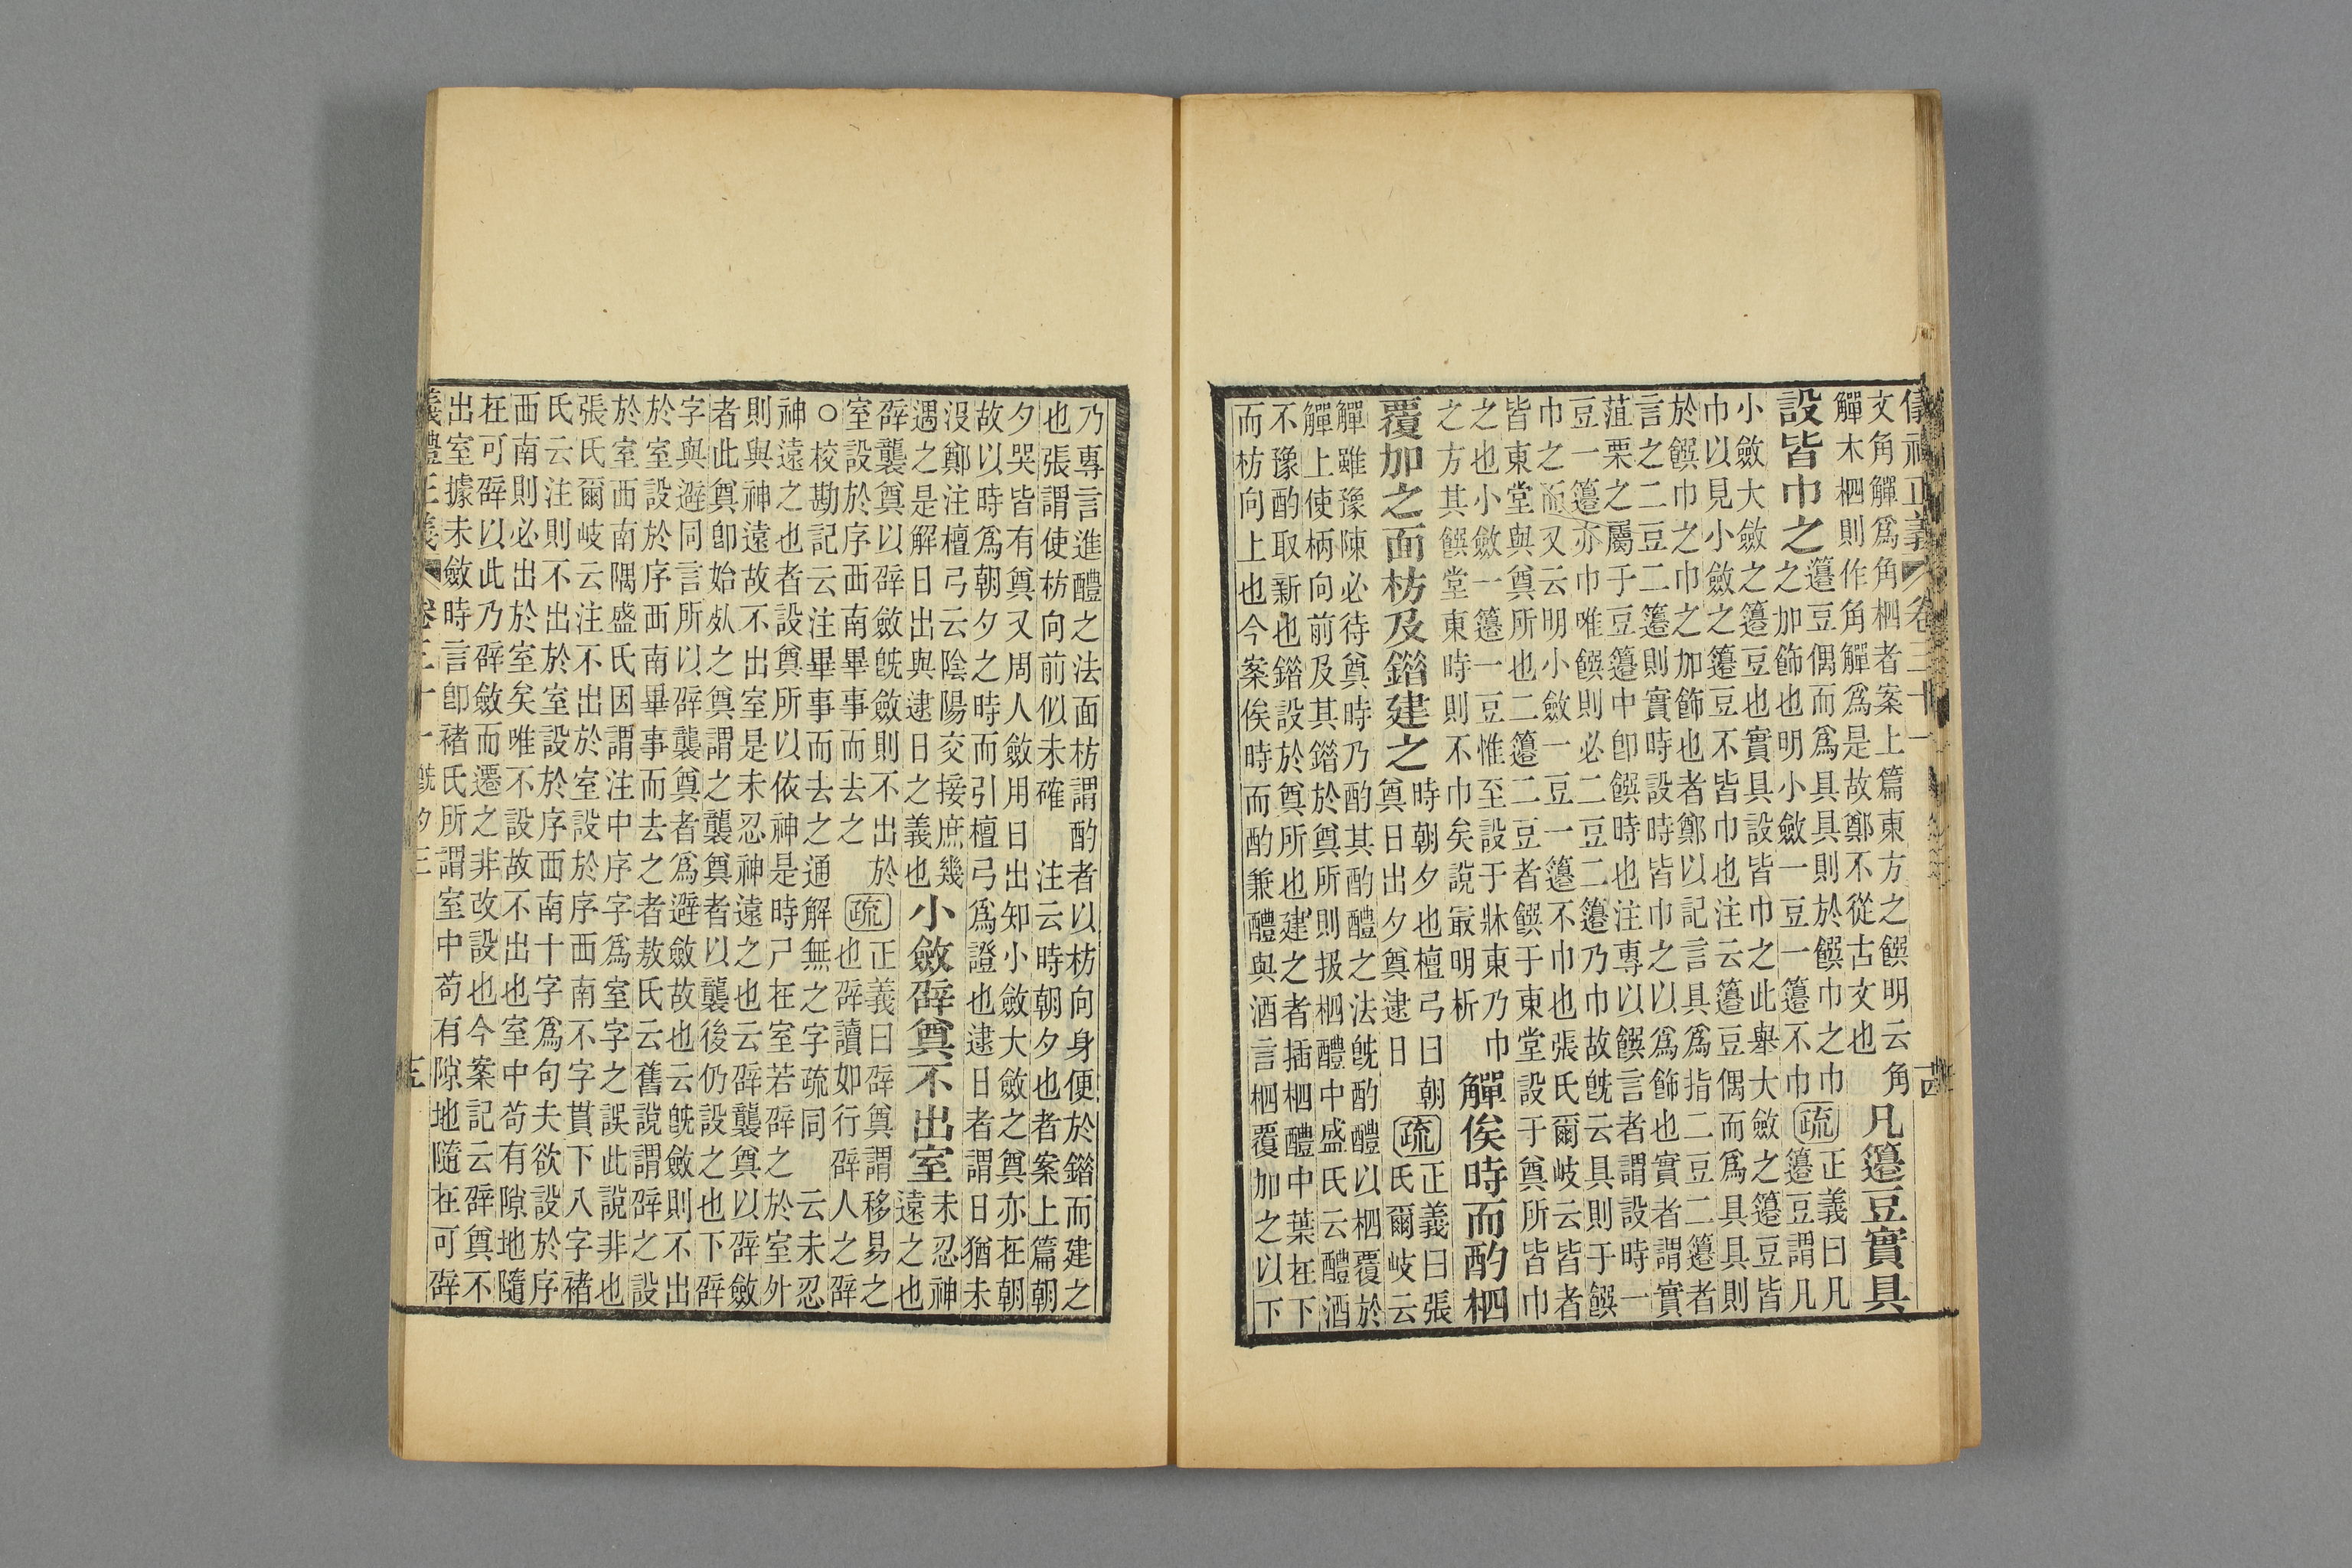 儀禮正義 卷三十一
文角觶爲角柶者案上篇東方之饌明云角
觶木柶則作角觶爲是故鄭不從古文也
凡籩豆實具
設皆巾之
籩豆偶而爲具具則於饌巾之巾
之加飾也明小斂一豆一籩不巾
疏
正義曰凡
籩豆謂凡
小斂大斂之籩豆也實具設皆巾之此舉大斂之籩豆皆
巾以見小斂之籩豆不皆巾也注云籩豆偶而爲具具則
於饌巾之巾之加飾也者鄭以記言具爲指二豆二籩者
言之二豆二籩則實時設時皆巾之以爲飾也實者謂實
菹栗之屬于豆籩中卽饌時也注專以饌言者謂設時一
豆一籩亦巾唯饌則必二豆二籩乃巾故旣云具則于饌
巾之而又云明小斂一豆一籩不巾也張氏爾岐云皆者
皆東堂與奠所也二籩二豆者饌于東堂設于奠所皆巾
之也小斂一籩一豆惟至設于牀東乃巾
之方其饌堂東時則不巾矣說最明析
觶俟時而酌柶
覆加之面枋及錯建之
時朝夕也檀弓曰朝
奠日出夕奠逮日
疏
正義曰張
氏爾岐云
觶雖豫陳必待奠時乃酌其酌醴之法旣酌醴以柶覆於
觶上使柄向前及其錯於奠所則扱柶醴中盛氏云醴酒
不豫酌取新也錯設於奠所也建之者插柶醴中葉在下
而枋向上也今案俟時而酌兼醴與酒言柶覆加之以下
乃專言進醴之法面枋謂酌者以枋向身便於錯而建之
也張謂使枋向前似未確 注云時朝夕也者案上篇朝
夕哭皆有奠又周人斂用日出知小斂大斂之奠亦在朝
故以時爲朝夕之時而引檀弓爲證也逮日者謂日猶未
沒鄭注檀弓云陰陽交接庶幾
遇之是解日出與逮日之義也
小斂辟奠不出室
未忍神
遠之也
辟襲奠以辟斂旣斂則不出於
室設於序西南畢事而去之
疏
正義曰辟奠謂移易之
也辟讀如行辟人之辟
○校勘記云注畢事而去之通解無之字疏同 云未忍
神遠之也者設奠所以依神是時尸在室若辟之於室外
則與神遠故不出室是未忍神遠之也云辟襲奠以辟斂
者此奠卽始死之奠謂之襲奠者以襲後仍設之也下辟
字與避同言所以辟襲奠者爲避斂故也云旣斂則不出
於室設於序西南畢事而去之者敖氏云舊說謂辟之設
於室西南隅盛氏因謂注中序字爲室字之誤此說非也
張氏爾岐云注不出於室設於序西南不字貫下八字褚
氏云注則不出於室設於序西南十字爲句夫欲設於序
西南則必出於室矣唯不設故不出也室中苟有隙地隨
在可辟以此乃辟斂而遷之非改設也今案記云辟奠不
出室據未斂時言卽褚氏所謂室中苟有隙地隨在可辟
義禮正義 卷三十一 旣夕三